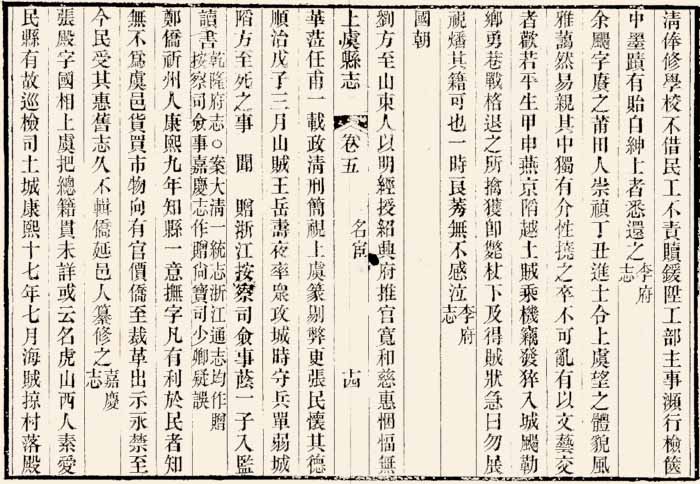 清俸修學校不借民工不責贖鍰陞工部主事瀕行檢篋
中墨蹟有貽自紳士者悉還之李府志
余颺字賡之莆田人崇禎丁丑進士令上虞望之體貌風
雅藹然易親其中獨有介性撓之卒不可亂有以文藝交
者歡若平生甲申燕京陷越土賊乘機竊發猝入城颺勒
鄉勇巷戰格退之所擒獲卽斃杖下及得賊狀急曰勿展
視燔其籍可也一時良莠無不感泣李府志
國朝
劉方至山東人以明經授紹興府推官寬和慈惠悃愊無
上虞縣志
卷五
名宦
十四
華蒞任甫一載政清刑簡視上虞篆剔弊更張民懷其德
順治戊子三月山賊王岳壽夜率眾攻城時守兵單弱城
陷方至死之事聞贈浙江按察司僉事蔭一子入監
讀書乾隆府志○案大清一統志浙江通志均作贈按察司僉事嘉慶志作贈尙寶司少卿疑誤
鄭僑祈州人康熙九年知縣一意撫字凡有利於民者知
無不爲虞邑貨買市物向有官價僑至裁革出示永禁至
今民受其惠舊志久不輯僑延邑人纂修之嘉慶志
張殿字國相上虞把總籍貫未詳或云名虎山西人素愛
民縣有故巡檢司土城康熙十七年七月海賊掠村落殿